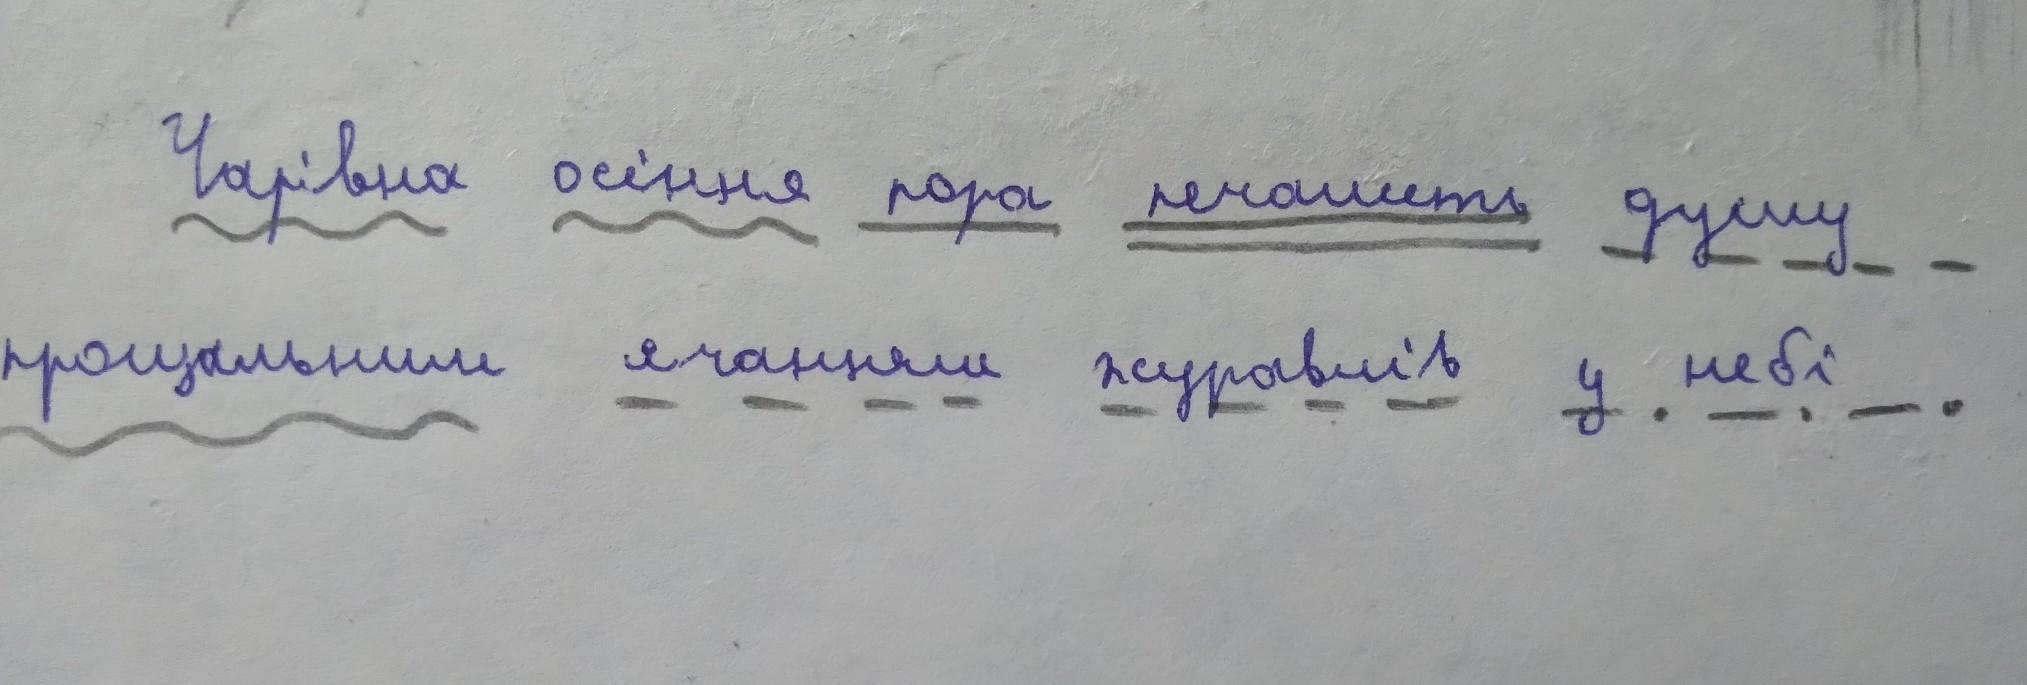 Чарівна осіння пора печалить душу
прощальним ячанням журавлів у небі